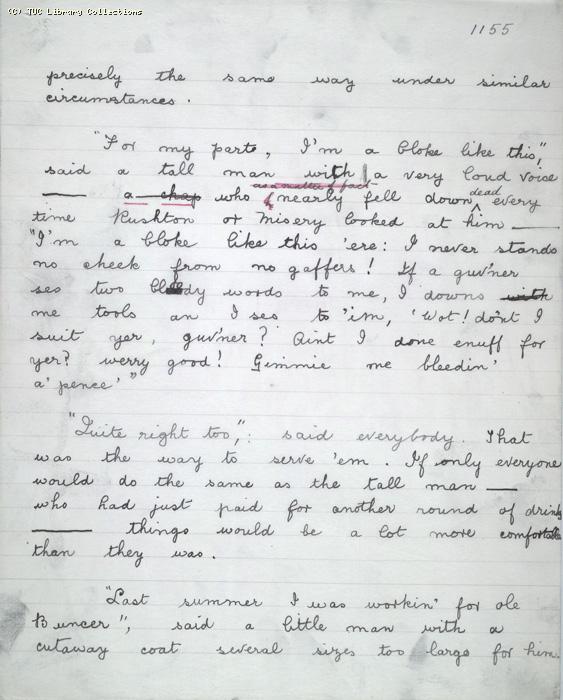 (C) TUC Library Collections
1155
precisely the same way under similar
circumstances.
"For my parts, I'm a bloke like this",
said a tall man with a very loud voice
as a matter of fact dead
— a chap who nearly fell down every
time Rushton or Misery looked at him —
"I'm a bloke like this 'ere: I never stands
no cheek from no gaffers! If a guv'ner
ses two bloody words to me, I downs with
me tools an I ses to 'im, 'Wot! dont I
suit yer, guv'ner? Aint I done enuff for
yer? werry good! Gimmie me bleedin'
a'pence'"
"Quite right too,": said everybody. That
was the way to serve 'em. If only everyone
would do the same as the tall man —
who had just paid for another round of drinks
— things would be a lot more comfortable
than they was.
"Last summer I was workin' for ole
Buncer", said a little man with a
cutaway coat several sizes too large for him.